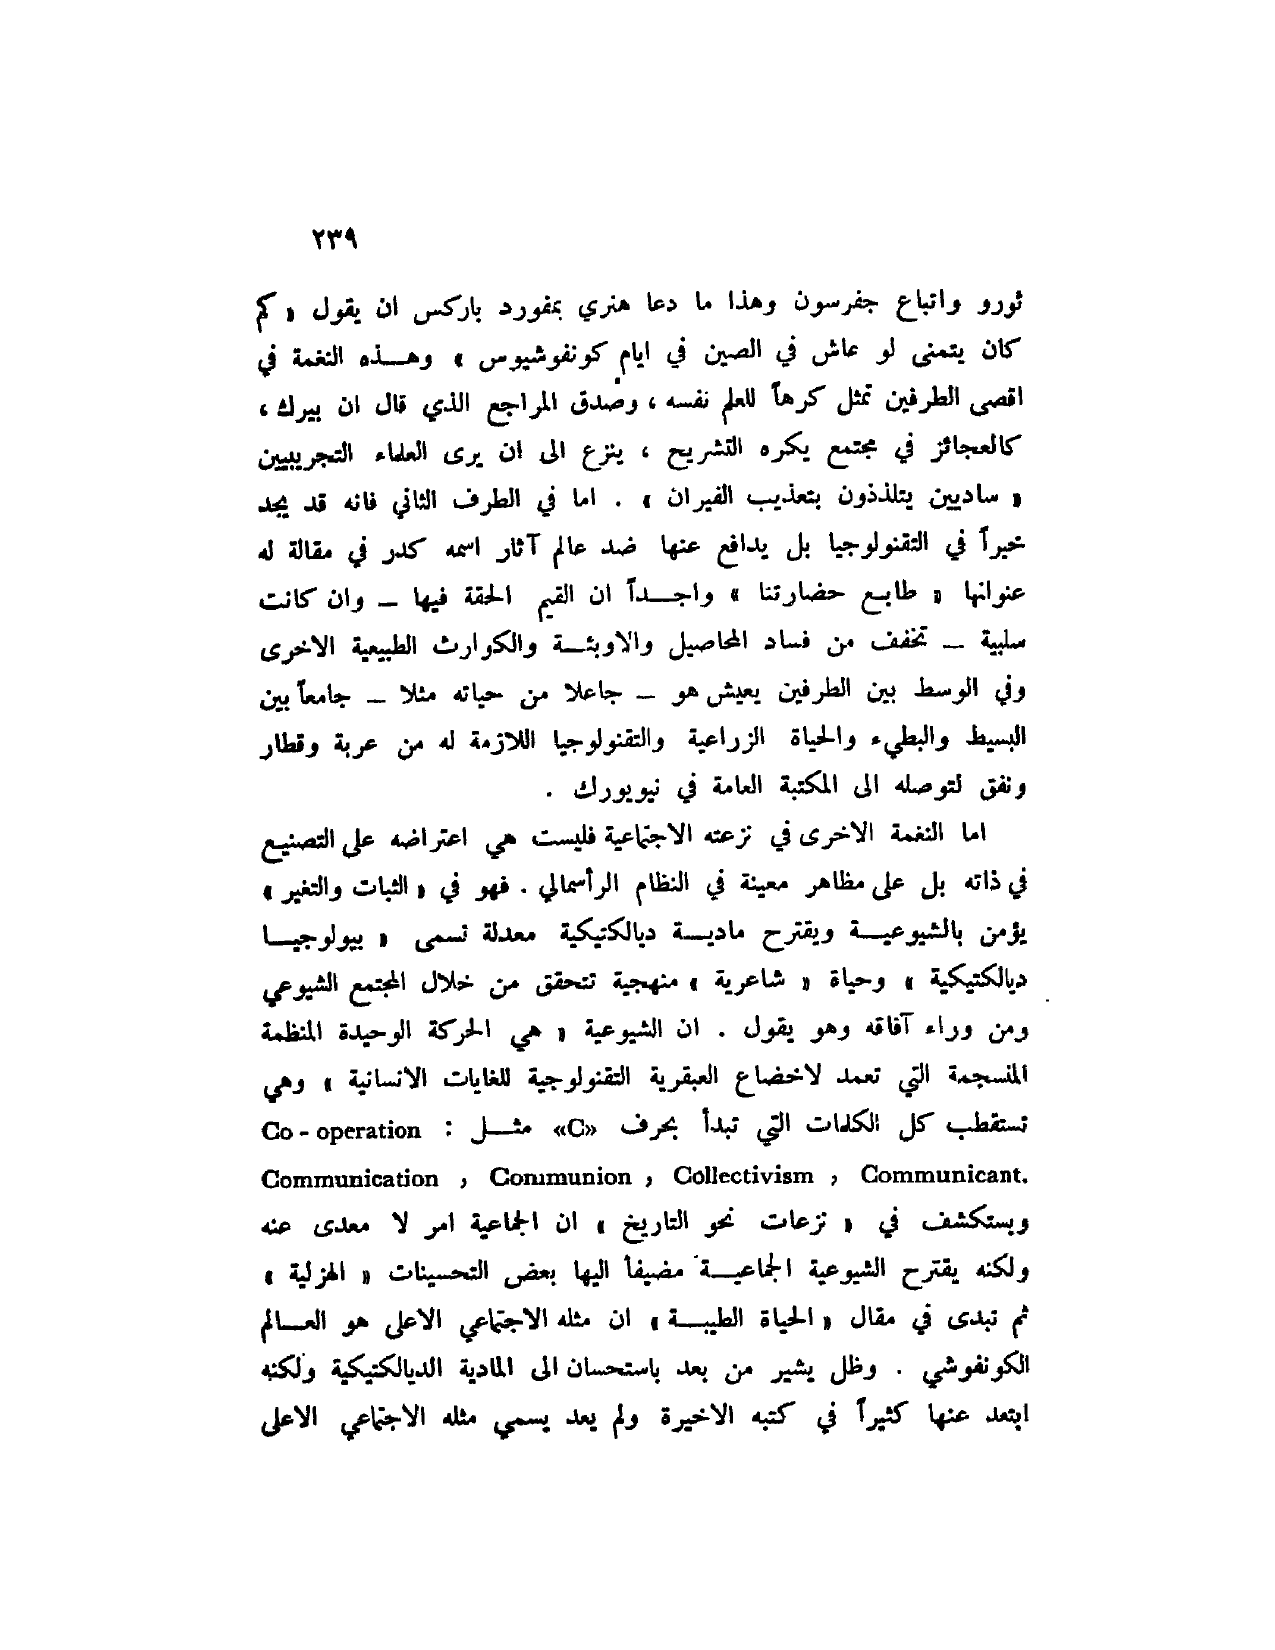 ٢٣٩
ثورو واتباع جفرسون وهذا ما دعا هنري بمفورد باركس ان يقول « كم
كان يتمنى لو عاش في الصين في ايام كونفوشيوس » وهــذه النغمة في
اقصى الطرفين تمثل كرهاً للعلم نفسه ، وصدق المراجع الذي قال ان بيرك ،
كالعجائز في مجتمع يكره التشريح ، ينزع الى ان يرى العلماء التجريبيين
« ساديين يتلذذون بتعذيب الفيران » . اما في الطرف الثاني فانه قد يجد
خيراً في التقنولوجيا بل يدافع عنها ضد عالم آثار اسمه كدر في مقالة له
عنوانها « طابع حضارتنا » واجــداً ان القيم الحقة فيها – وان كانت
سلبية – تخفف من فساد المحاصيل والاوبئــة والكوارث الطبيعية الاخرى
وفي الوسط بين الطرفين يعيش هو – جاعلا من حياته مثلا – جامعاً بين
البسيط والبطيء والحياة الزراعية والتقنولوجيا اللازمة له من عربة وقطار
ونفق لتوصله الى المكتبة العامة في نيويورك .
اما النغمة الاخرى في نزعته الاجتماعية فليست هي اعتراضه على التصنيع
في ذاته بل على مظاهر معينة في النظام الرأسمالي . فهو في « الثبات والتغير »
يؤمن بالشيوعيــة ويقترح ماديــة ديالكتيكية معدلة تسمى « بيولوجيــا
ديالكتيكية » وحياة « شاعرية » منهجية تتحقق من خلال المجتمع الشيوعي
ومن وراء آفاقه وهو يقول . ان الشيوعية « هي الحركة الوحيدة المنظمة
المنسجمة التي تعمد لاخضاع العبقرية التقنولوجية للغايات الانسانية » وهي
تستقطب كل الكلمات التي تبدأ بحرف «C» مثــل : Co - operation
Communication , Communion , Collectivism , Communicant.
ويستكشف في « نزعات نحو التاريخ » ان الجماعية امر لا معدى عنه
ولكنه يقترح الشيوعية الجماعيــة مضيفاً اليها بعض التحسينات « الهزلية »
ثم تبدى في مقال « الحياة الطيبــة » ان مثله الاجتماعي الاعلى هو العــالم
الكونفوشي . وظل يشير من بعد باستحسان الى المادية الديالكتيكية ولكنه
ابتعد عنها كثيراً في كتبه الاخيرة ولم يعد يسمي مثله الاجتماعي الاعلى